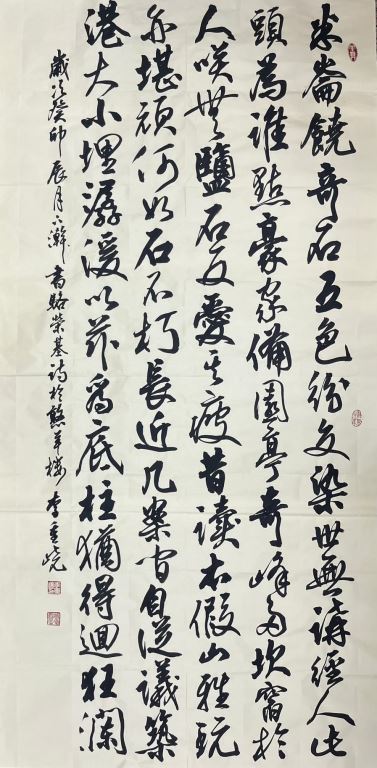 米崙饒奇石五色紛交染世無講經人此
頭為誰點豪家備園亭奇峰多坎窞於
人咲無鹽石反愛其瘦昔讀木假山雅玩
亦堪頑何如石不朽長近几案間自從議築
港大小埋潺湲以茲為底柱猶得迴狂瀾
歲次癸卯辰月下澣書駱榮基詩於羊樓李重